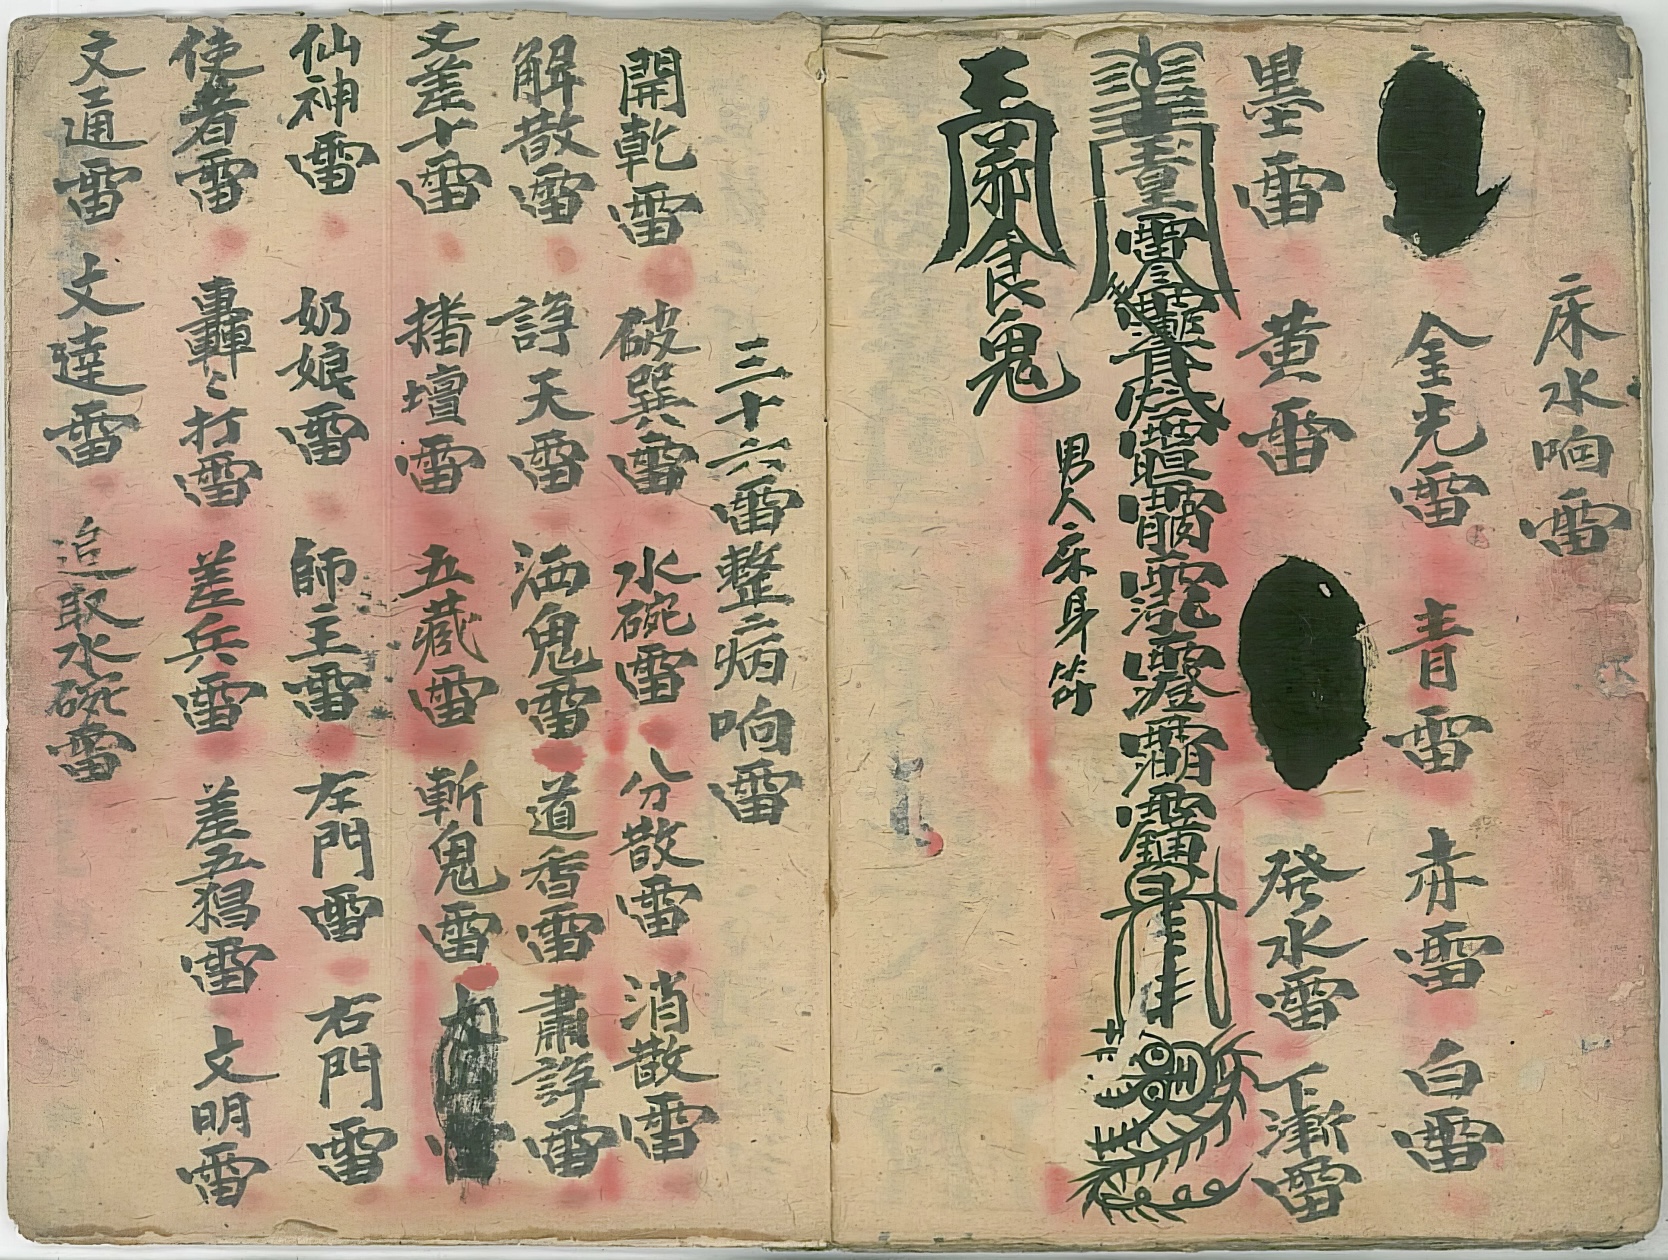 床水响雷
金光雷 青雷 赤雷 白雷
墨雷 黄雷 發水雷 下漸雷
食鬼
三十六雷整病响雷
開乾雷 破巽雷 水碗雷 八分散雷 消散雷
解散雷 諍天雷 洒鬼雷 道香雷 肅諍雷
文差十雷 播壇雷 五藏雷 斬鬼雷
仙神雷 奶娘雷 師主雷 左門雷 右門雷
使者雷 轟〻打雷 差兵雷 差五猖雷 文明雷
文通雷 文達雷 追取水碗雷